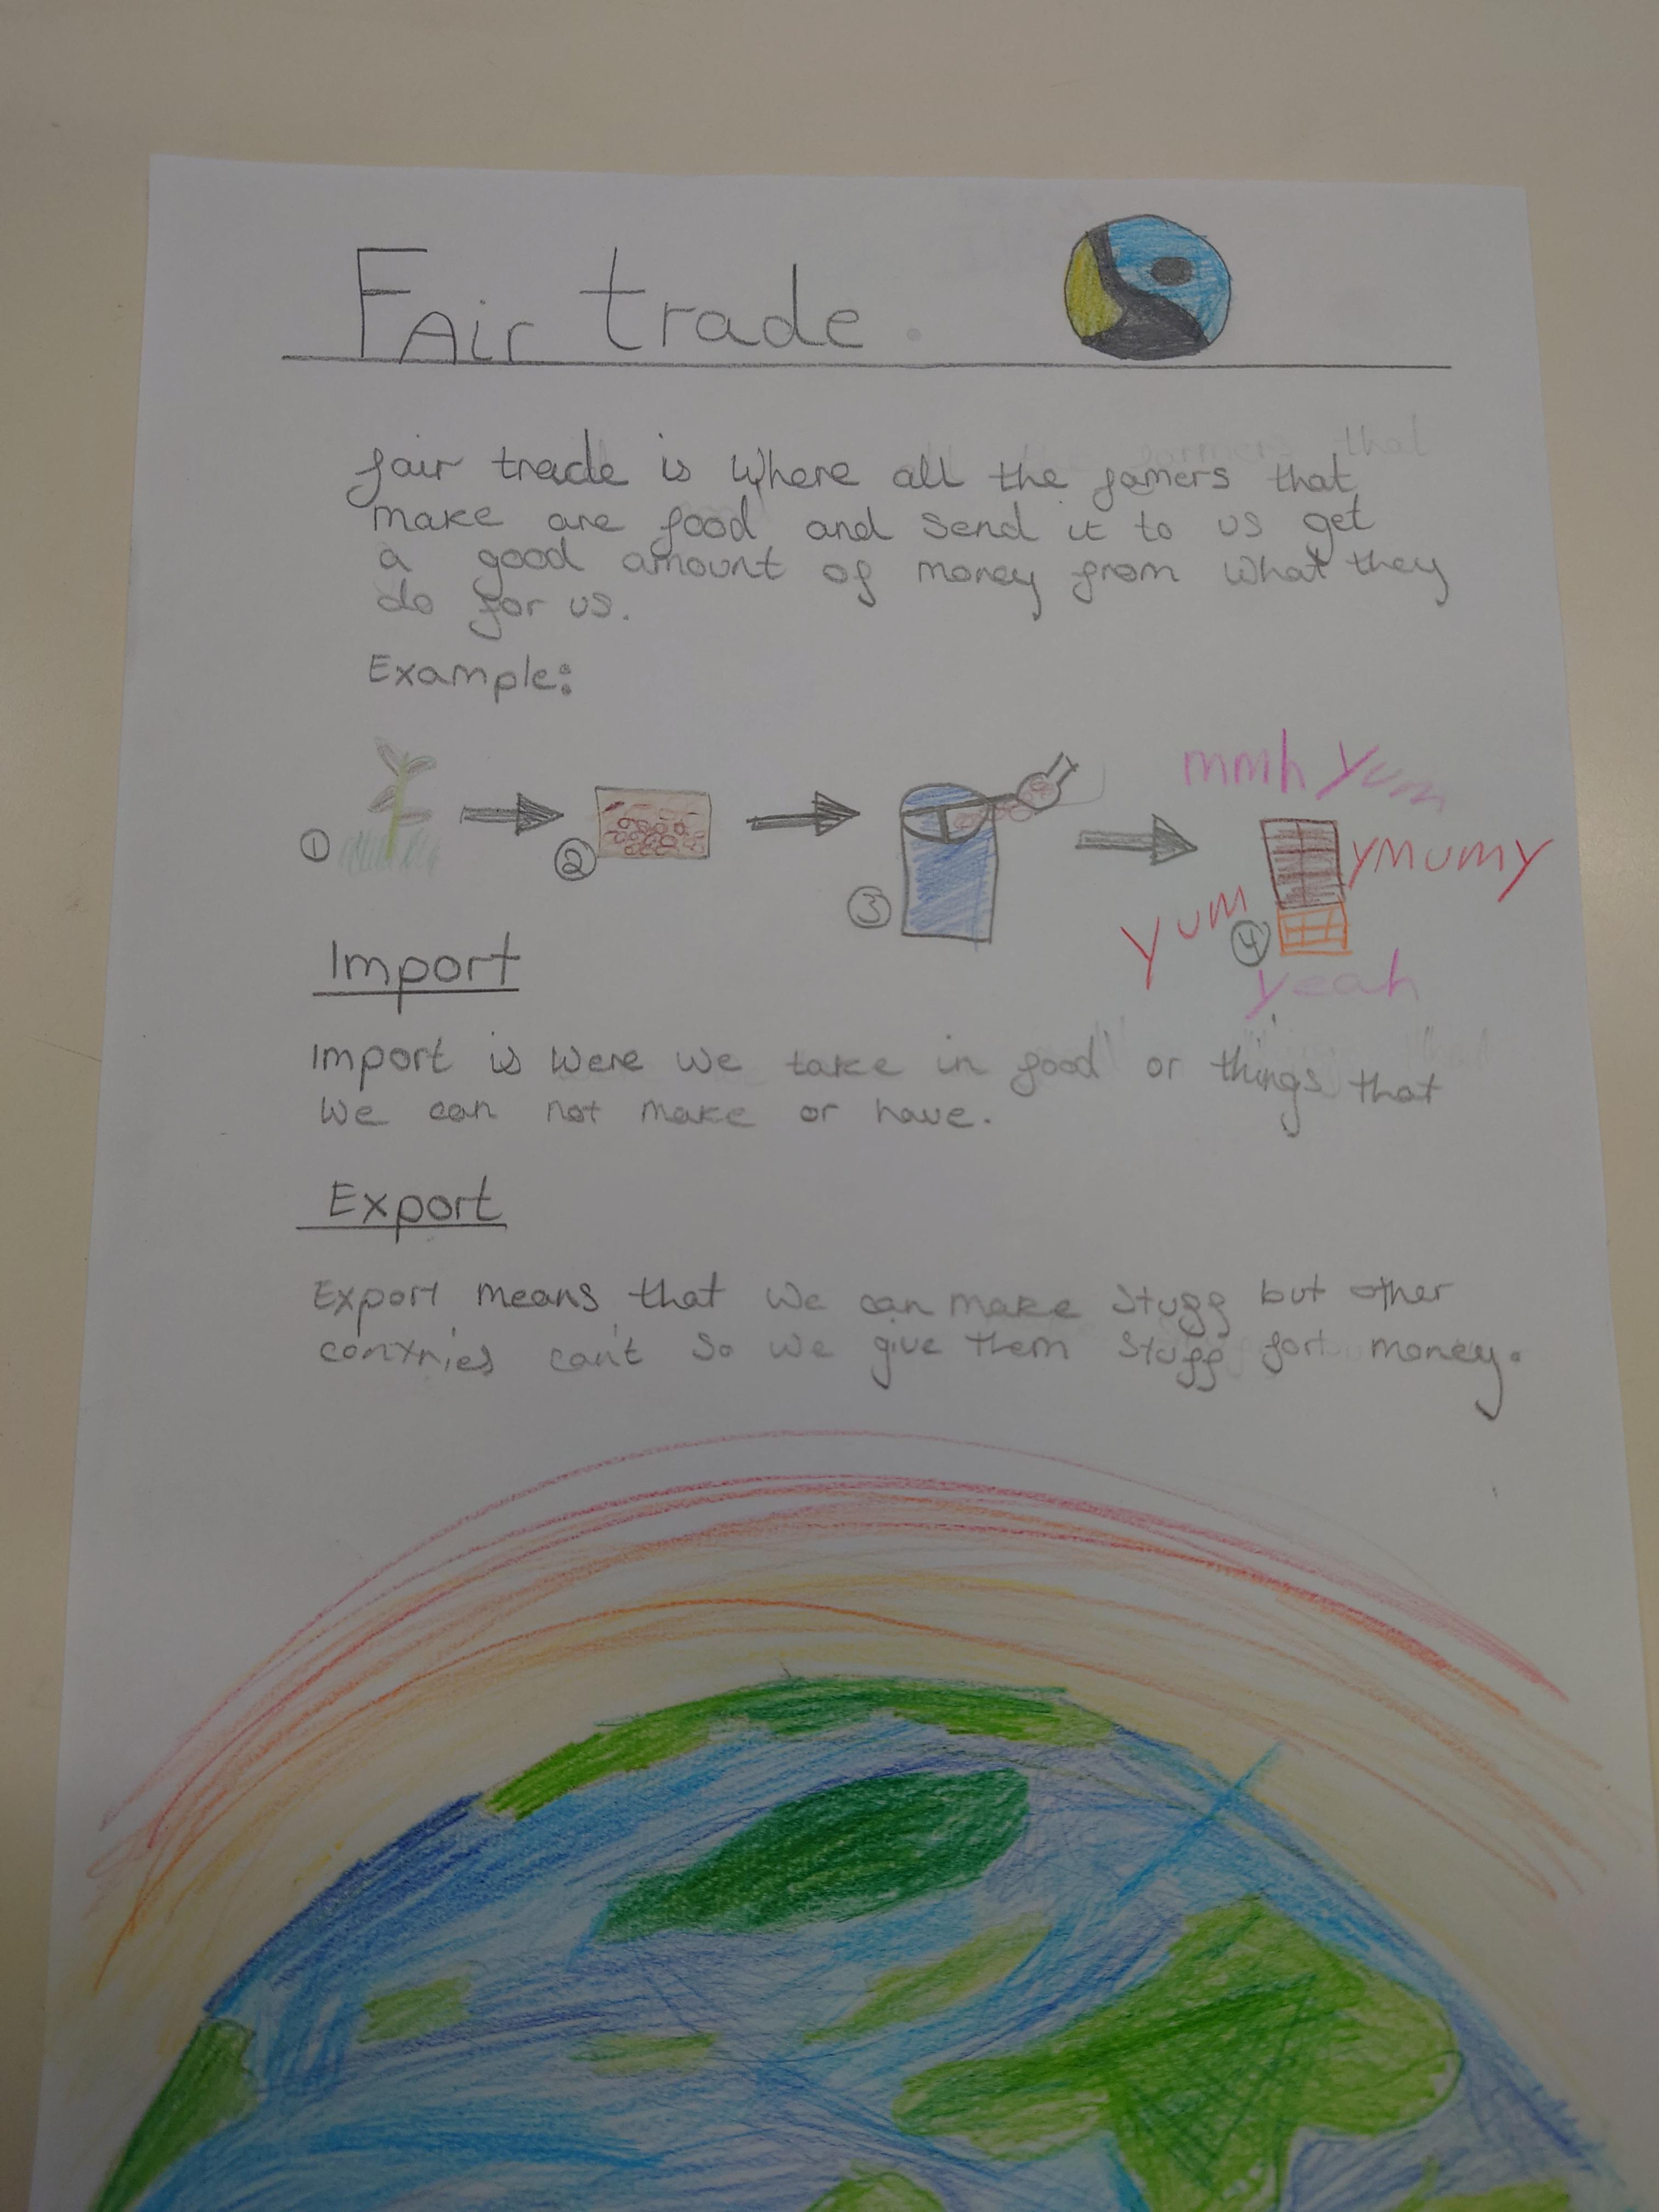 FAir trade.
fair trade is where all the famers that
make are food and send it to us get
a good amount of money from what they
do for us.
Example:
mmh yum
ymumy
yum
yeah
1
2
3
4
Import
Import is were we take in food or things that
we can not make or have.
Export
Export means that we can make stuff but other
contries can't so we give them stuff for money.